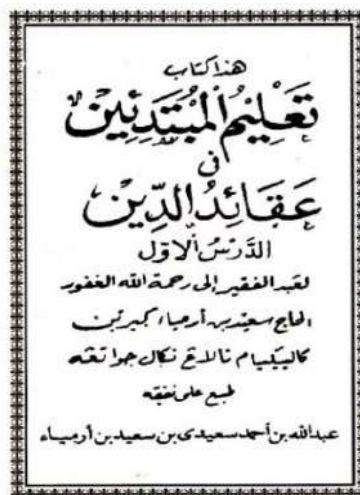 هذا كتاب
تعليم المبتدئين
في
عقائد الدين
الدرس الاول
لعبد الفقير إلى رحمة الله الغفور
الحاج سعيد بن أرمياء كيرتين
كاليبليام تالاغ تكال جوا تغه
طبع على نفقه
عبدالله بن أحمد سعيدى بن سعيد بن أرمياء